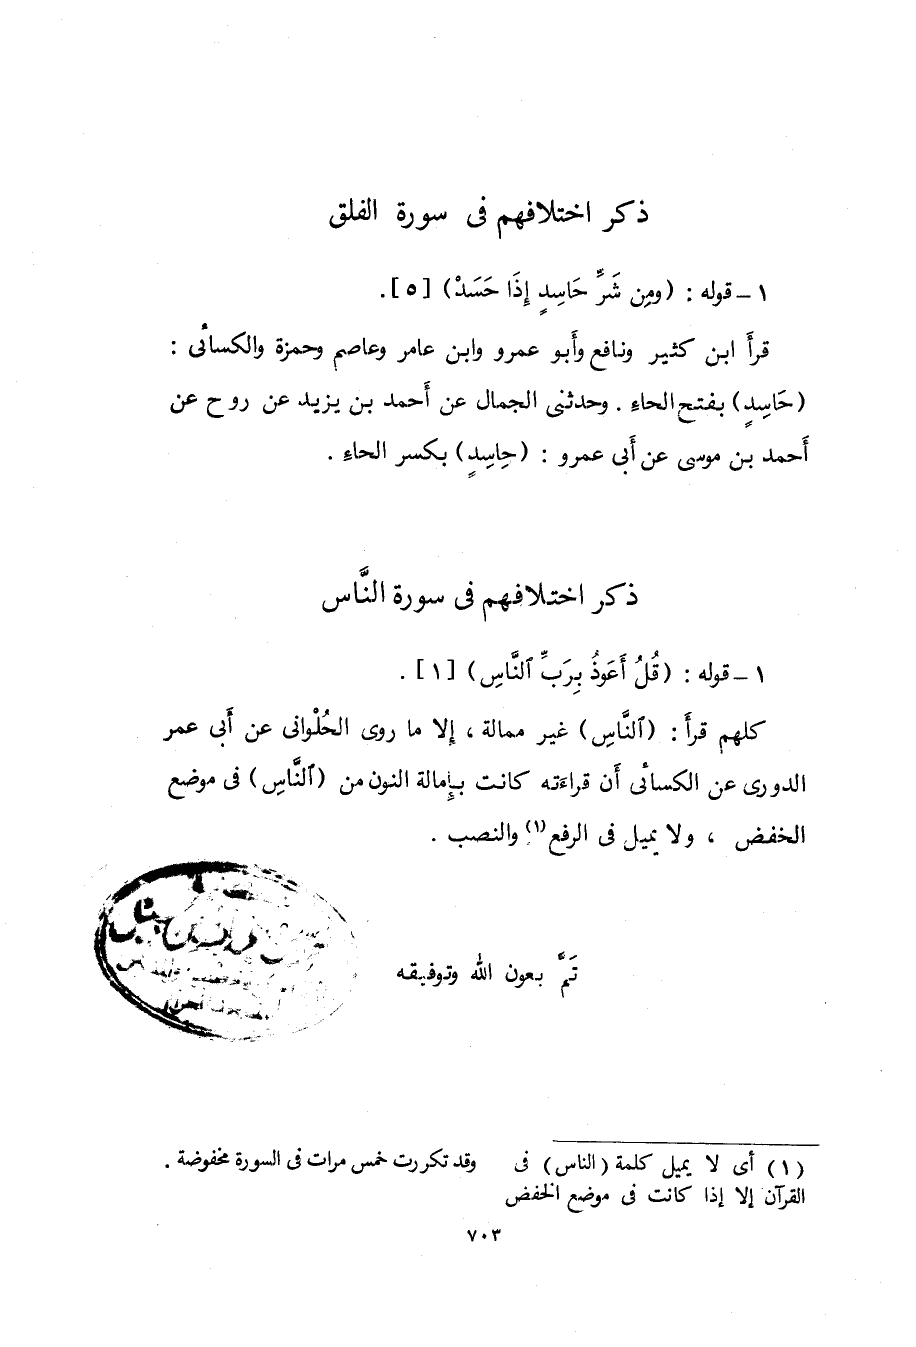 ذكر اختلافهم فى سورة الفلق
١ – قوله : (ومِن شَرِّ حَاسِدٍ إِذَا حَسَدْ) [٥] .
قرأَ ابن كثير ونافع وأَبو عمرو وابن عامر وعاصم وحمزة والكسائى :
(حَاسِدٍ) بفتح الحاء . وحدثنى الجمال عن أَحمد بن يزيد عن روح عن
أَحمد بن موسى عن أَبى عمرو : (حِاسِدٍ) بكسر الحاء .
ذكر اختلافهم فى سورة النَّاس
١ – قوله : (قُلُ أَعَوذُ بِرَبِّ ٱلنَّاسِ) [١] .
كلهم قرأَ : (ٱلنَّاسِ) غير ممالة ، إِلا ما روى الحُلْوانى عن أَبى عمر
الدورى عن الكسائى أَن قراءَته كانت بإِمالة النون من (ٱلنَّاسِ) فى موضع
الخفض ، ولا يميل فى الرفع(١) والنصب .
تمَّ بعون الله وتوفيقه
(١) أى لا يميل كلمة (الناس) فى
القرآن إلا إذا كانت فى موضع الخفض
وقد تكررت خمس مرات فى السورة مخفوضة .
٧٠٣